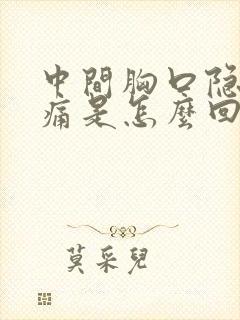 中間胸口隐
痛是怎麼回
莫采兒